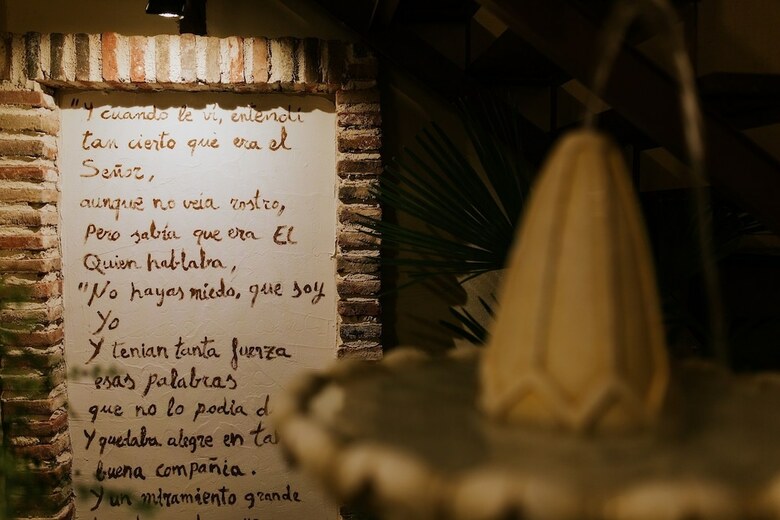 "Y cuando le vi, entendí
tan cierto que era el
Señor,
aunque no veia rostro,
Pero sabía que era El
Quien hablaba,
"No hayas miedo, que soy
Yo
Y tenian tanta fuerza
esas palabras
que no lo podia d
Y quedaba alegre en ta
buena compañia.
Y un miramiento grande